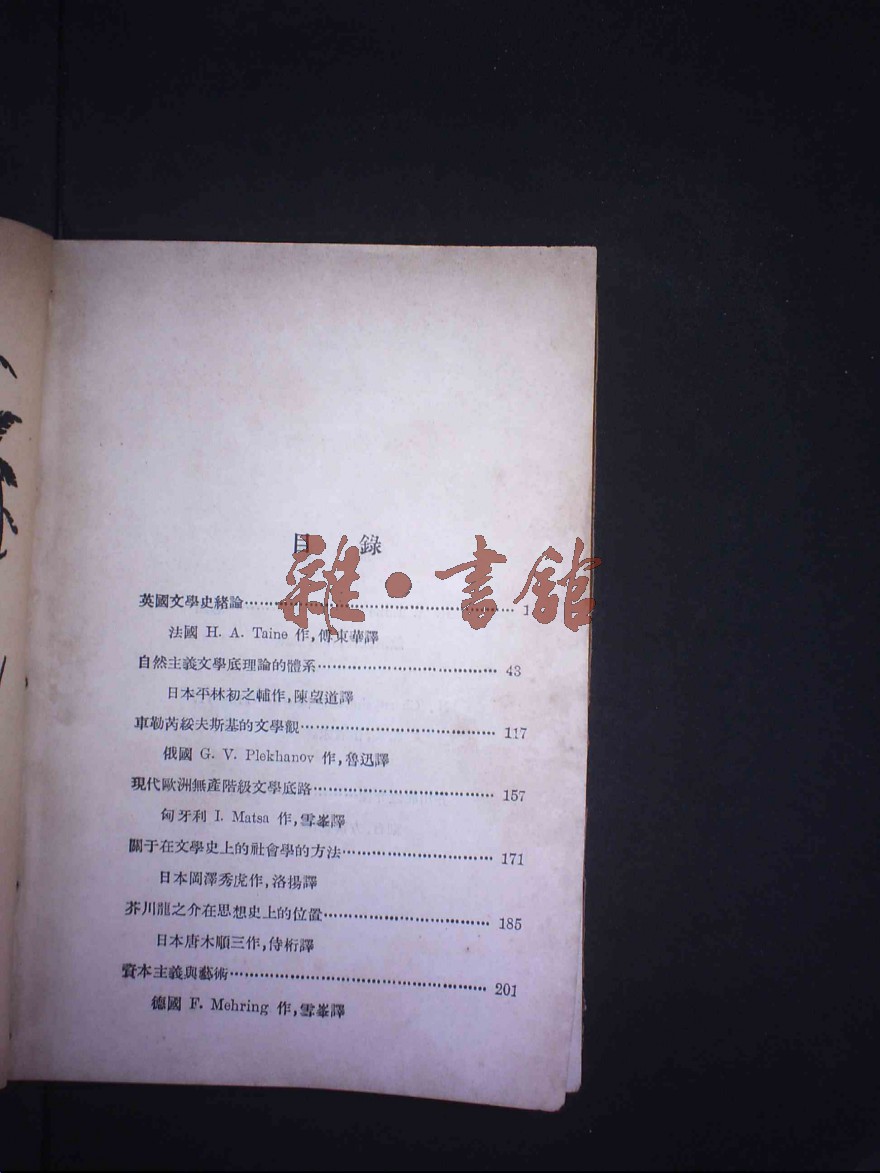 目 錄
雜·書館
英國文學史緒論……………………………………1
法國 H. A. Taine 作,傅東華譯
自然主義文學底理論的體系……………………… 43
日本平林初之輔作,陳望道譯
車勒芮綏夫斯基的文學觀………………………… 117
俄國 G. V. Plekhanov 作,魯迅譯
現代歐洲無產階級文學底路……………………… 157
匈牙利 I. Matsa 作,雪峯譯
關于在文學史上的社會學的方法………………… 171
日本岡澤秀虎作,洛揚譯
芥川龍之介在思想史上的位置…………………… 185
日本唐木順三作,侍桁譯
資本主義與藝術…………………………………… 201
德國 F. Mehring 作,雪峯譯